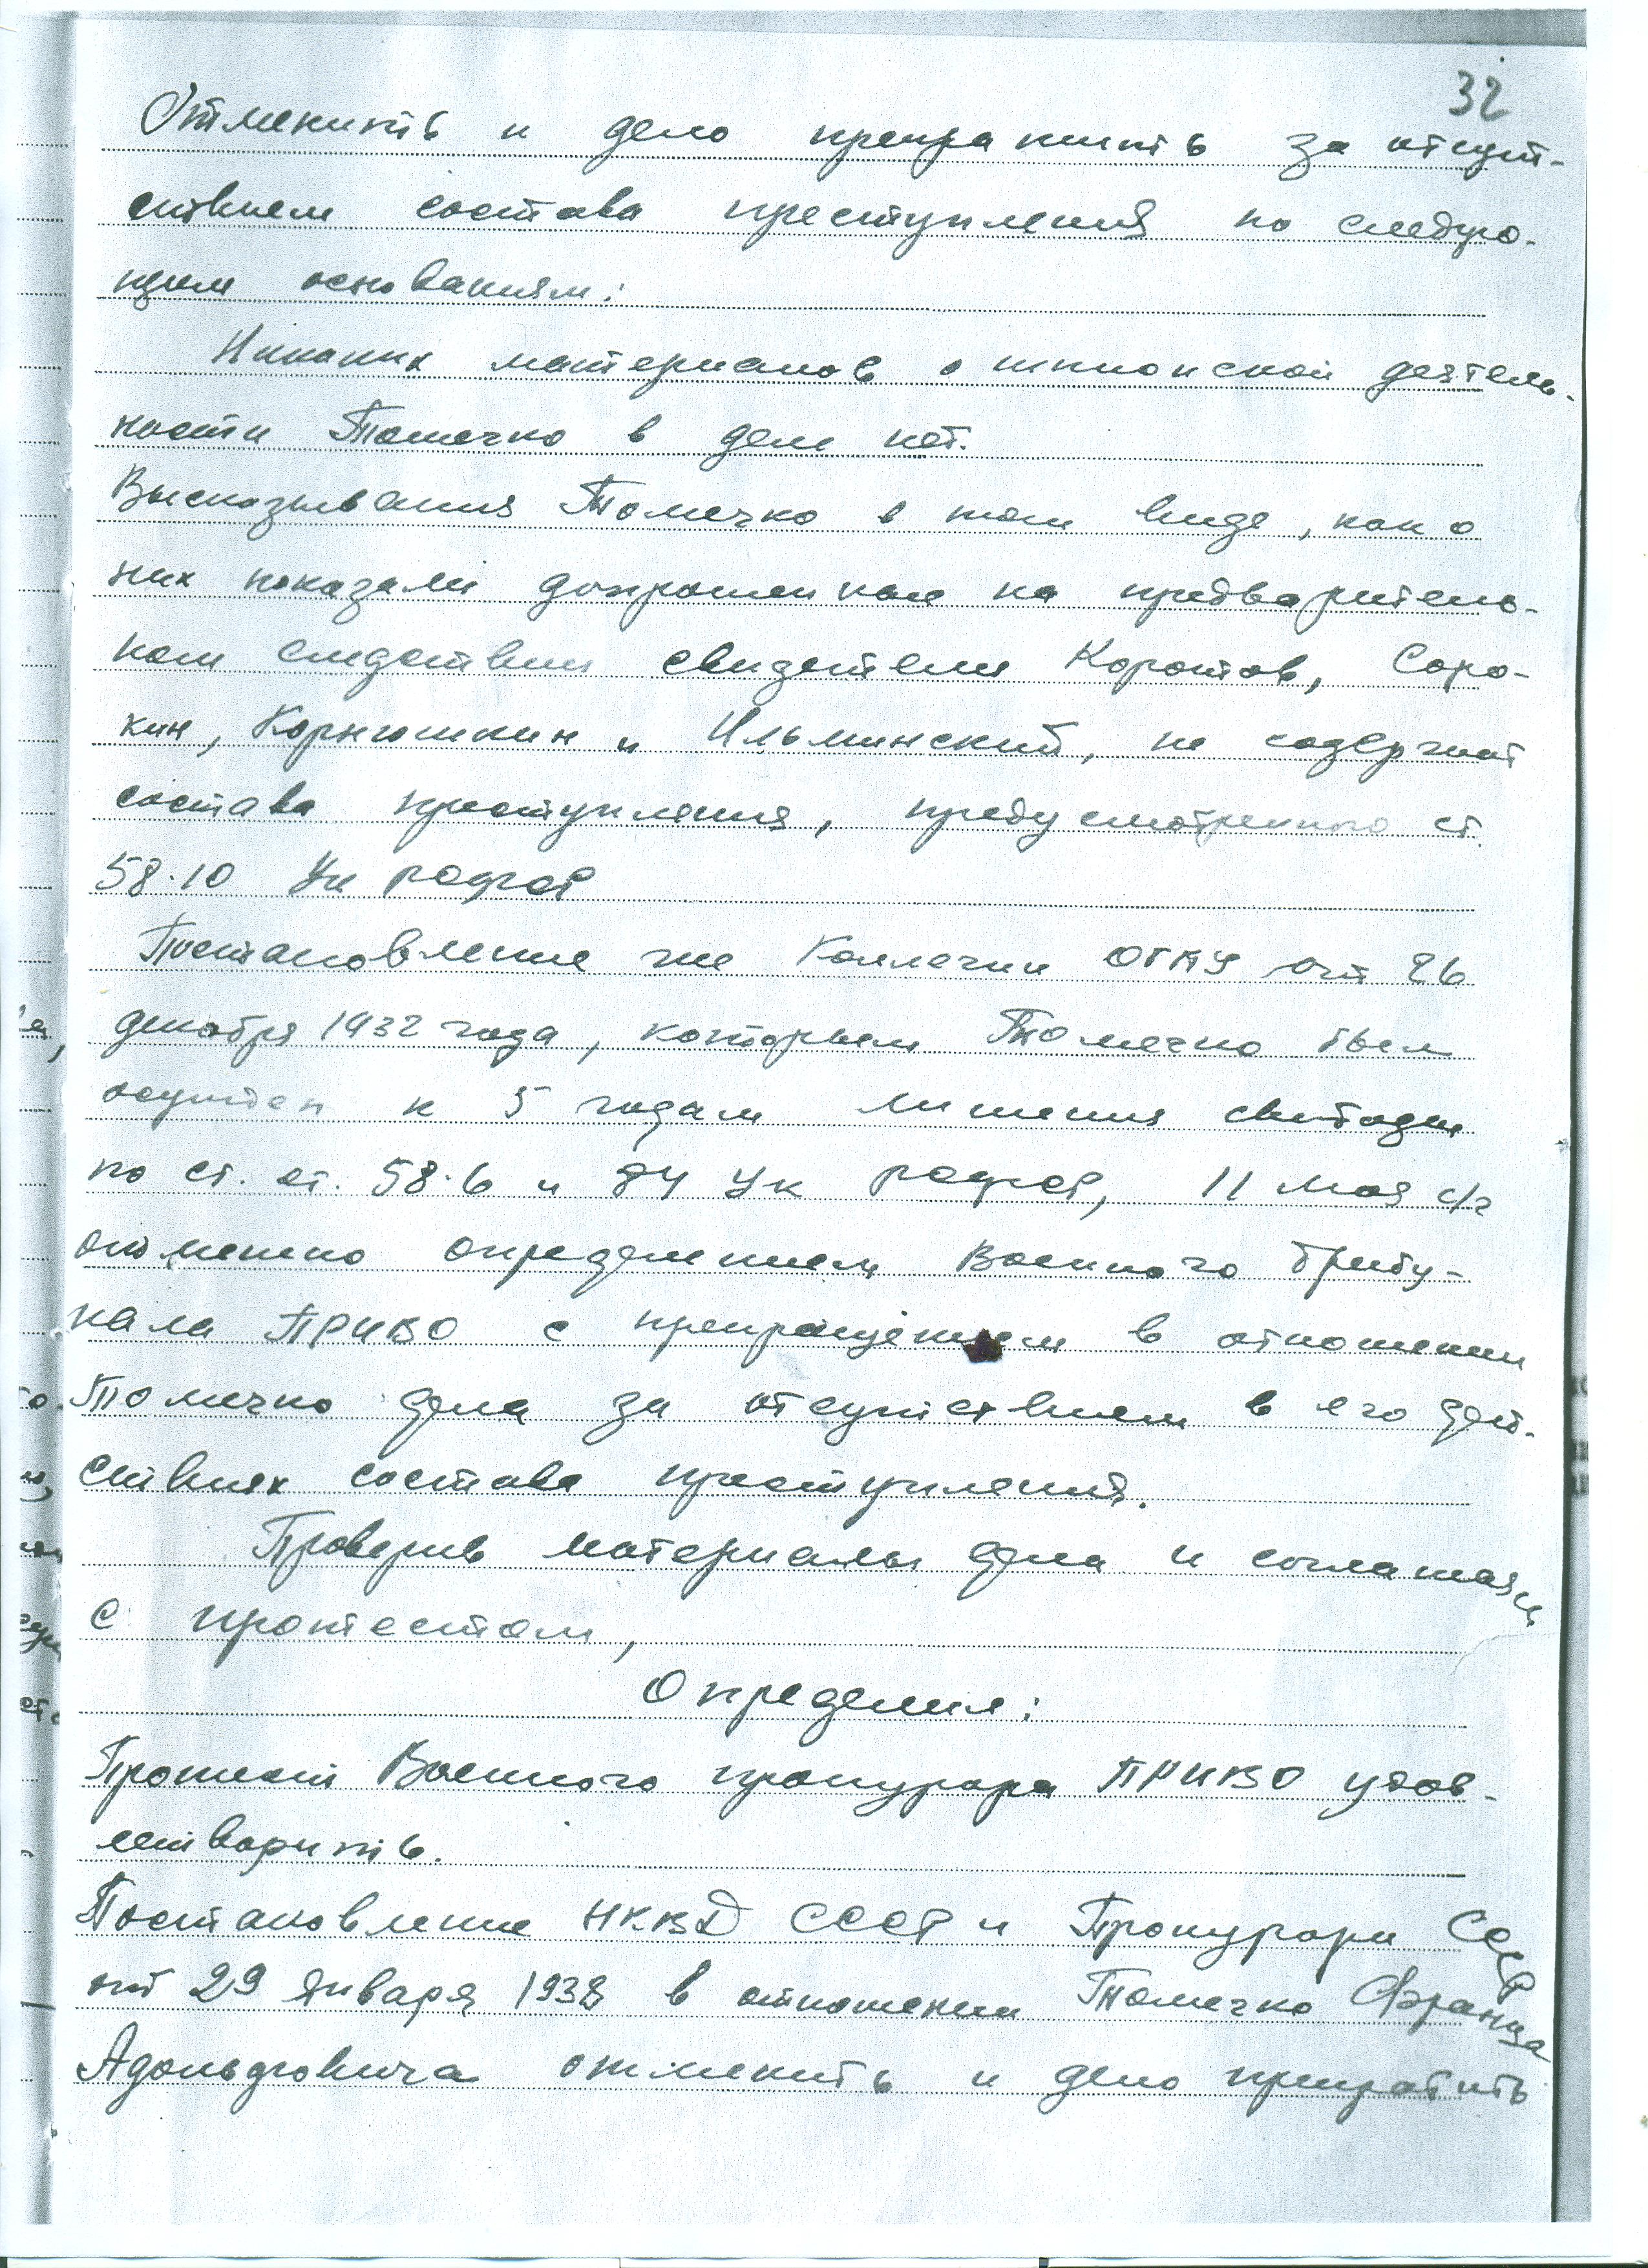 32
Отменить и дело прекратить за отсут-
ствием состава преступления по следую-
щим основаниям:
Никаких материалов о шпионской деятель-
ности Томечко в деле нет.
Высказывания Томечко в том виде, как о
них показали допрошенные на предваритель-
ном следствии свидетели Коротов, Соро-
кин, Корнюшкин и Ильминский, не содержат
состава преступления, предусмотренного ст.
58.10 УК РСФСР
Постановление же Коллегии ОГПУ от 26
декабря 1932 года, которым Томечко был
осужден к 5 годам лишения свободы
по ст. ст. 58.6 и 84 УК РСФСР, 11 мая с/г
отменено определением Военного трибу-
нала ПРИВО с прекращением в отношении
Томечко дела за отсутствием в его дей-
ствиях состава преступления.
Проверив материалы дела и соглашаясь
с протестом,
Определил:
Протест Военного прокурора ПРИВО удов-
летворить.
Постановление НКВД СССР и Прокурора СССР
от 29 января 1938 в отношении Томечко Франца
Адольфовича отменить и дело прекратить